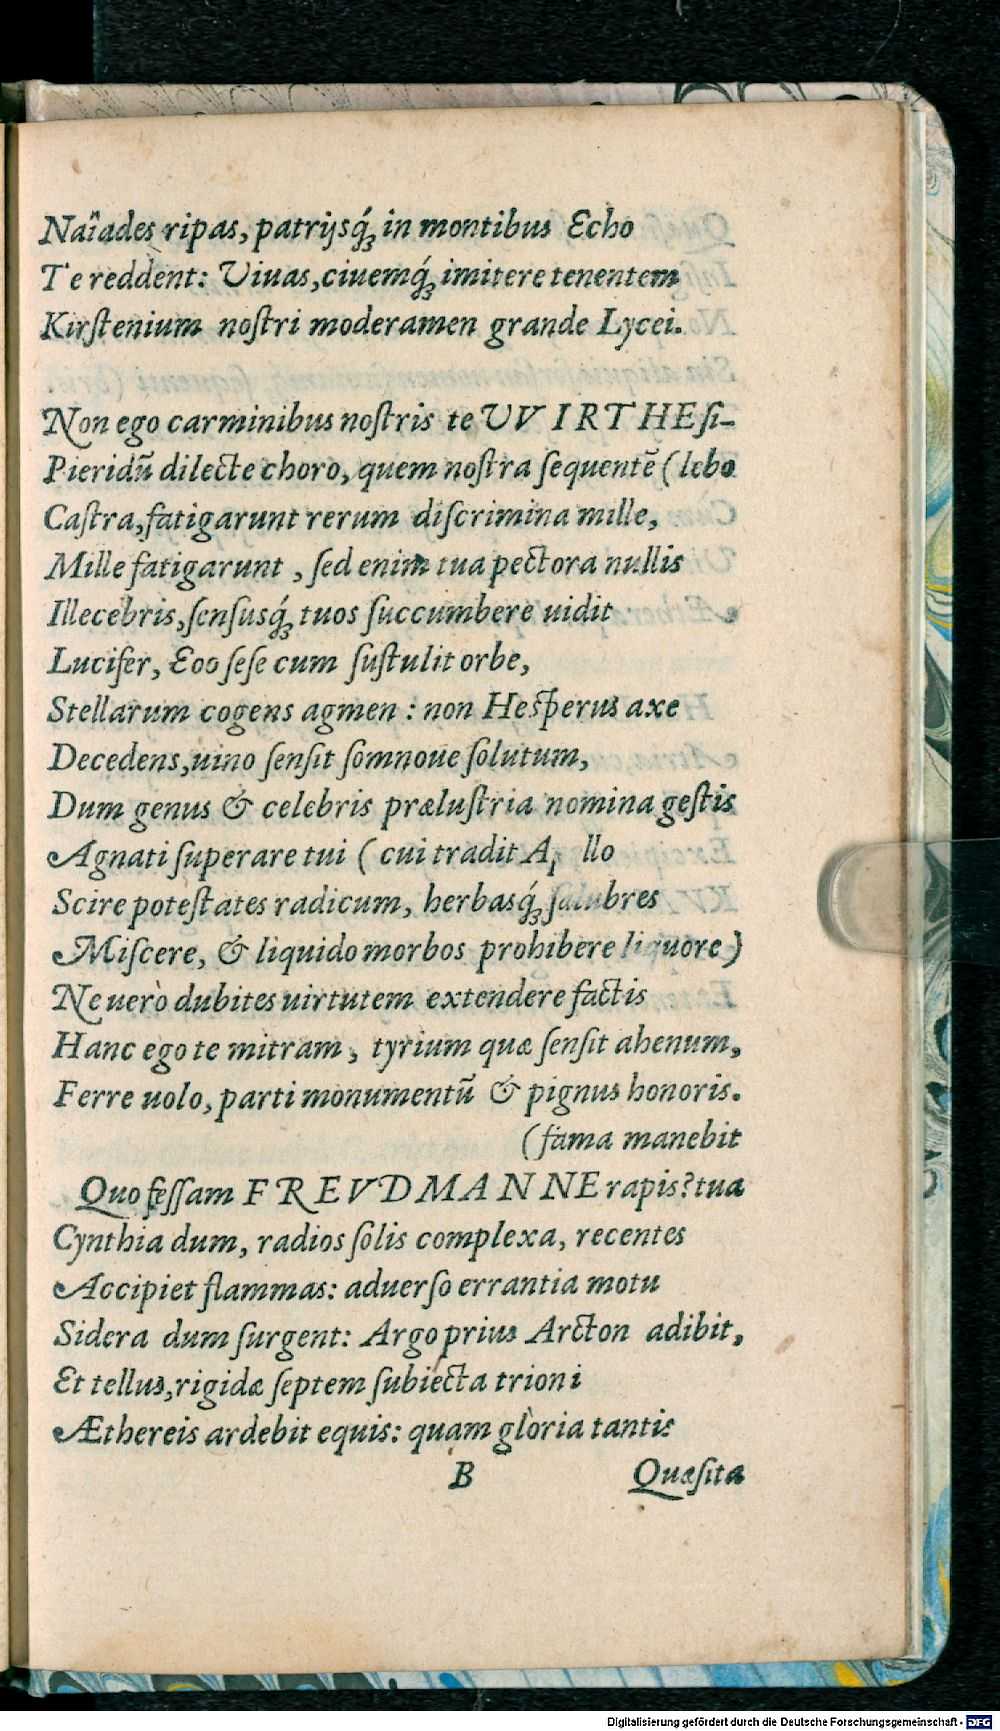 Naïades ripas, patrijsq́; in montibus Echo
Te reddent: Viuas, ciuemq́; imitere tenentem
Kirſtenium noſtri moderamen grande Lycei.
Non ego carminibus noſtris te UVIRTHE ſi-
Pieridũ dilecte choro, quem noſtra ſequentẽ (lebo
Caſtra, fatigarunt rerum diſcrimina mille,
Mille fatigarunt, ſed enim tua pectora nullis
Illecebris, ſenſusq́; tuos ſuccumbere uidit
Lucifer, Eoo ſeſe cum ſuſtulit orbe,
Stellarum cogens agmen: non Heſperus axe
Decedens, uino ſenſit ſomnoue ſolutum,
Dum genus & celebris præluſtria nomina geſtis
Agnati ſuperare tui (cui tradit A llo
Scire poteſtates radicum, herbasq́; ſalubres
Miſcere, & liquido morbos prohibere liquore)
Ne uerò dubites uirtutem extendere factis
Hanc ego te mitram, tyrium quæ ſenſit ahenum,
Ferre uolo, parti monumentũ & pignus honoris.
(fama manebit
Quo feſſam FREVDMANNE rapis? tua
Cynthia dum, radios ſolis complexa, recentes
Accipiet flammas: aduerſo errantia motu
Sidera dum ſurgent: Argo prius Arcton adibit,
Et tellus, rigidæ ſeptem ſubiecta trioni
Æthereis ardebit equis: quam gloria tantis
B Quæſita
Digitalisierung gefördert durch die Deutsche Forschungsgemeinschaft - DFG